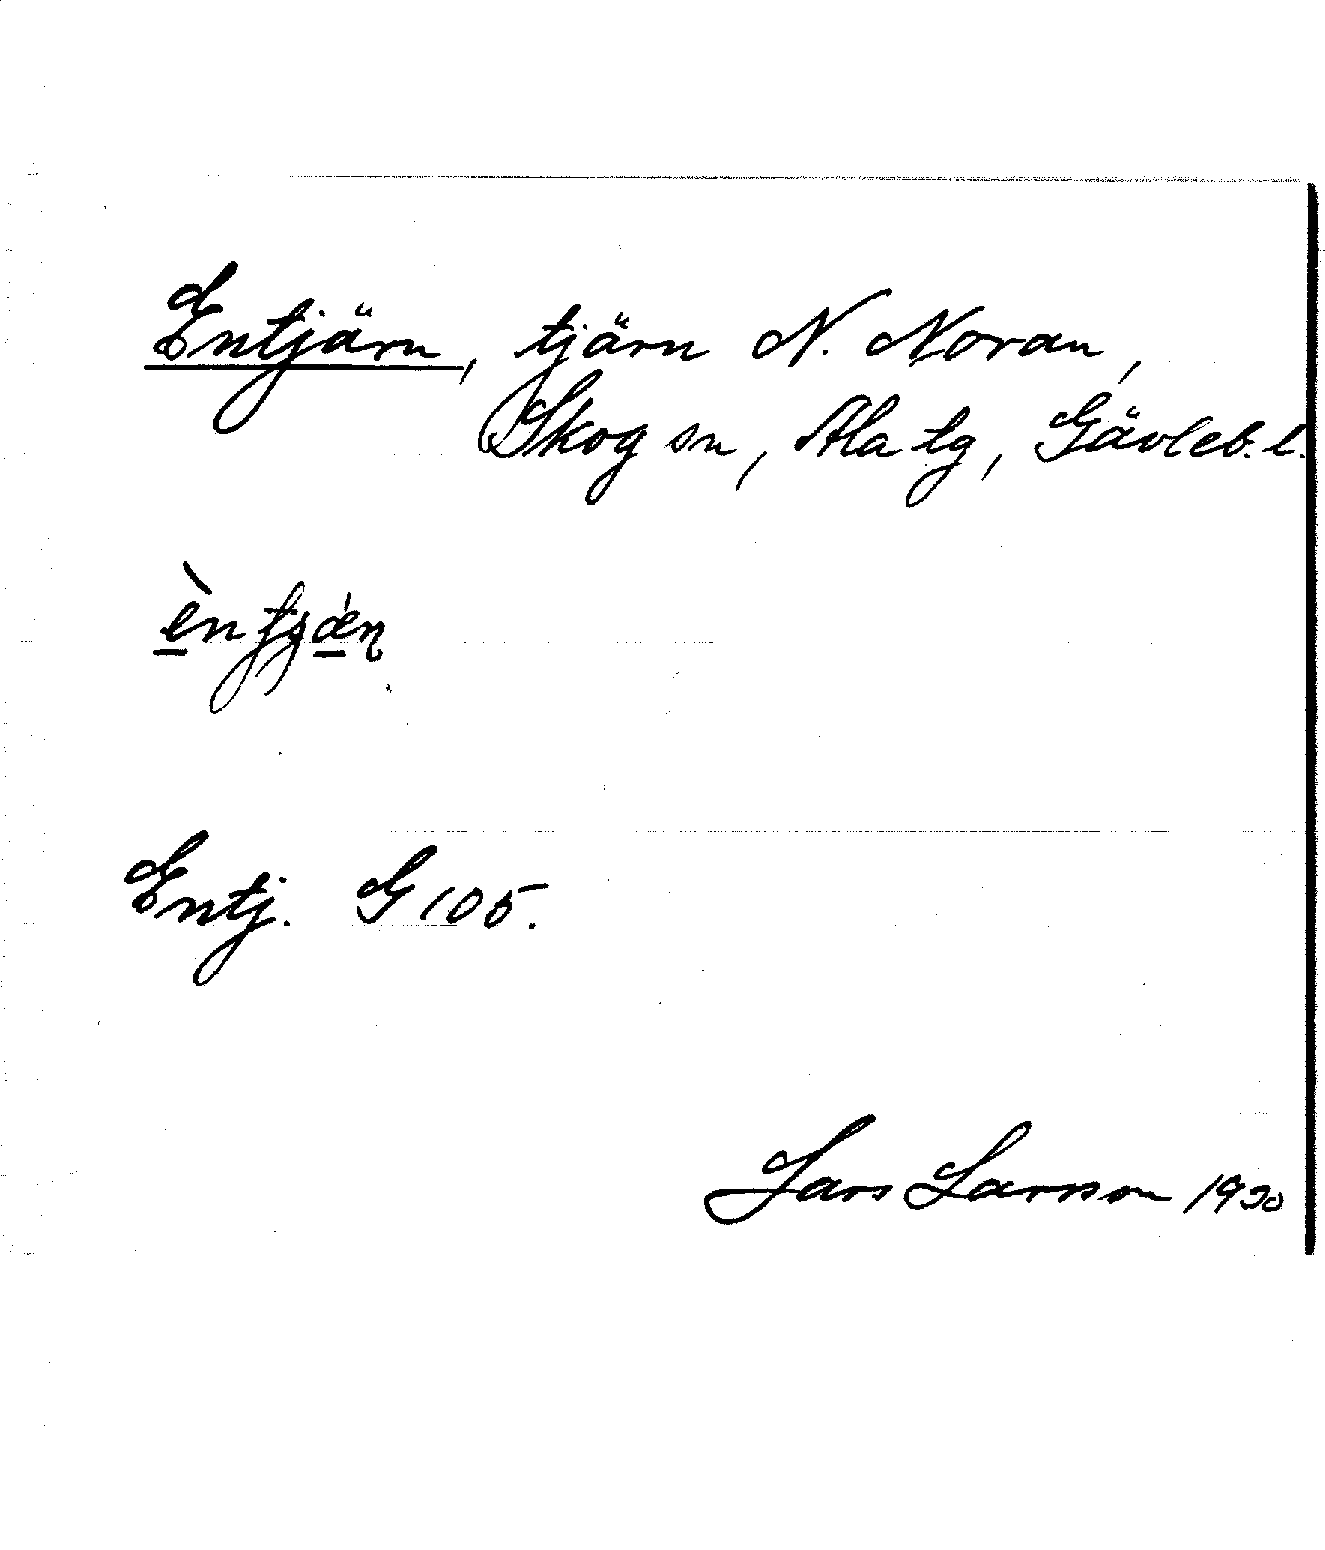 Entjärn, tjärn N. Noran,
Skog sn, Ala tg, Gävleb. l.
Entj. G 105.
Lars Larsson 1930